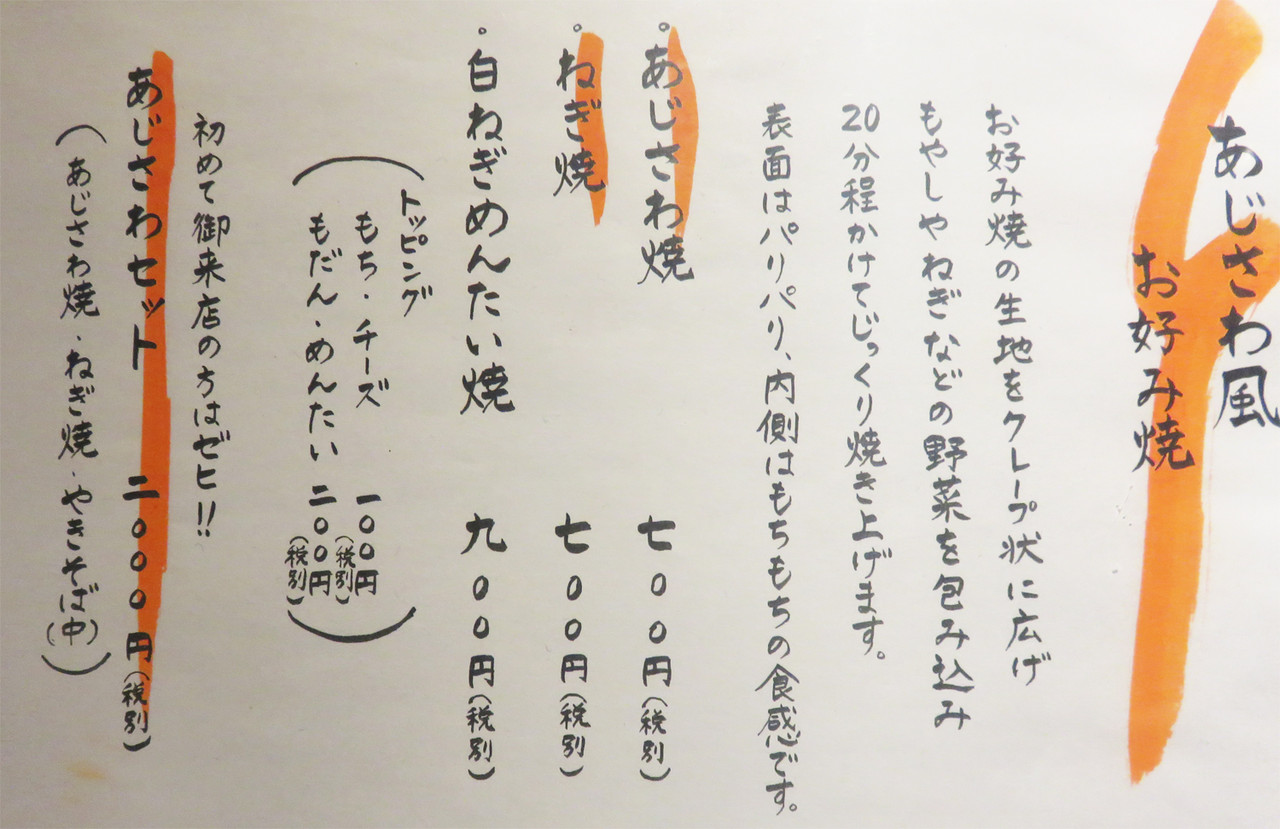 あじさわ風
お好み焼
お好み焼の生地をクレープ状に広げ
もやしやねぎなどの野菜を包み込み
20分程かけてじっくり焼き上げます。
表面はパリパリ、内側はもちもちの食感です。
。あじさわ焼 七〇〇円(税別)
。ねぎ焼 七〇〇円(税別)
。白ねぎめんたい焼 九〇〇円(税別)
(トッピング
もち・チーズ 一〇〇円(税別)
もだん・めんたい 二〇〇円(税別))
初めて御来店の方はゼヒ!!
あじさわセット 二〇〇〇円(税別)
(あじさわ焼・ねぎ焼・やきそば(中))